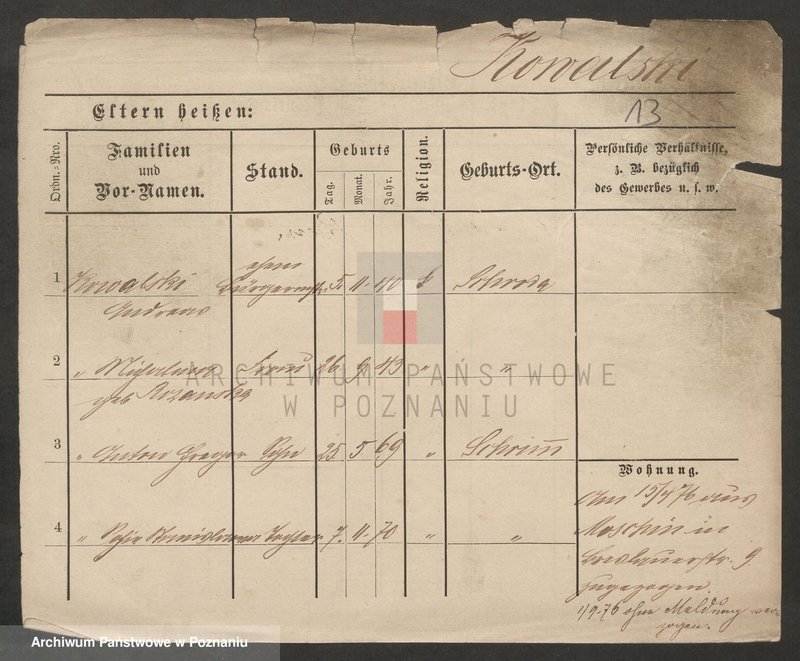 Kowalski
13
Eltern heißen:
Ordn.-Nro.
Familien
und
Vor-Namen.
Stand.
Geburts
Tag.
Monat.
Jahr.
Religion.
Geburts-Ort.
Persönliche Verhältnisse,
z. B. bezüglich
des Gewerbes u. s. w.
1 Kowalski 5. 11. 40 k Schroda
Andreas
2 " Frau 26 9 43 " "
geb Rozanska
3 " Anton Gregor Sohn 25. 5 69 " Schrimm
4 " Tochter 7. 11. 70 " "
Wohnung.
Am 15/4 76 aus
Moschin in
Breslauerstr. 9
zugezogen.
1/9. 76 ohne Meldung ver-
zogen.
ARCHIWUM PAŃSTWOWE
W POZNANIU
Archiwum Państwowe w Poznaniu